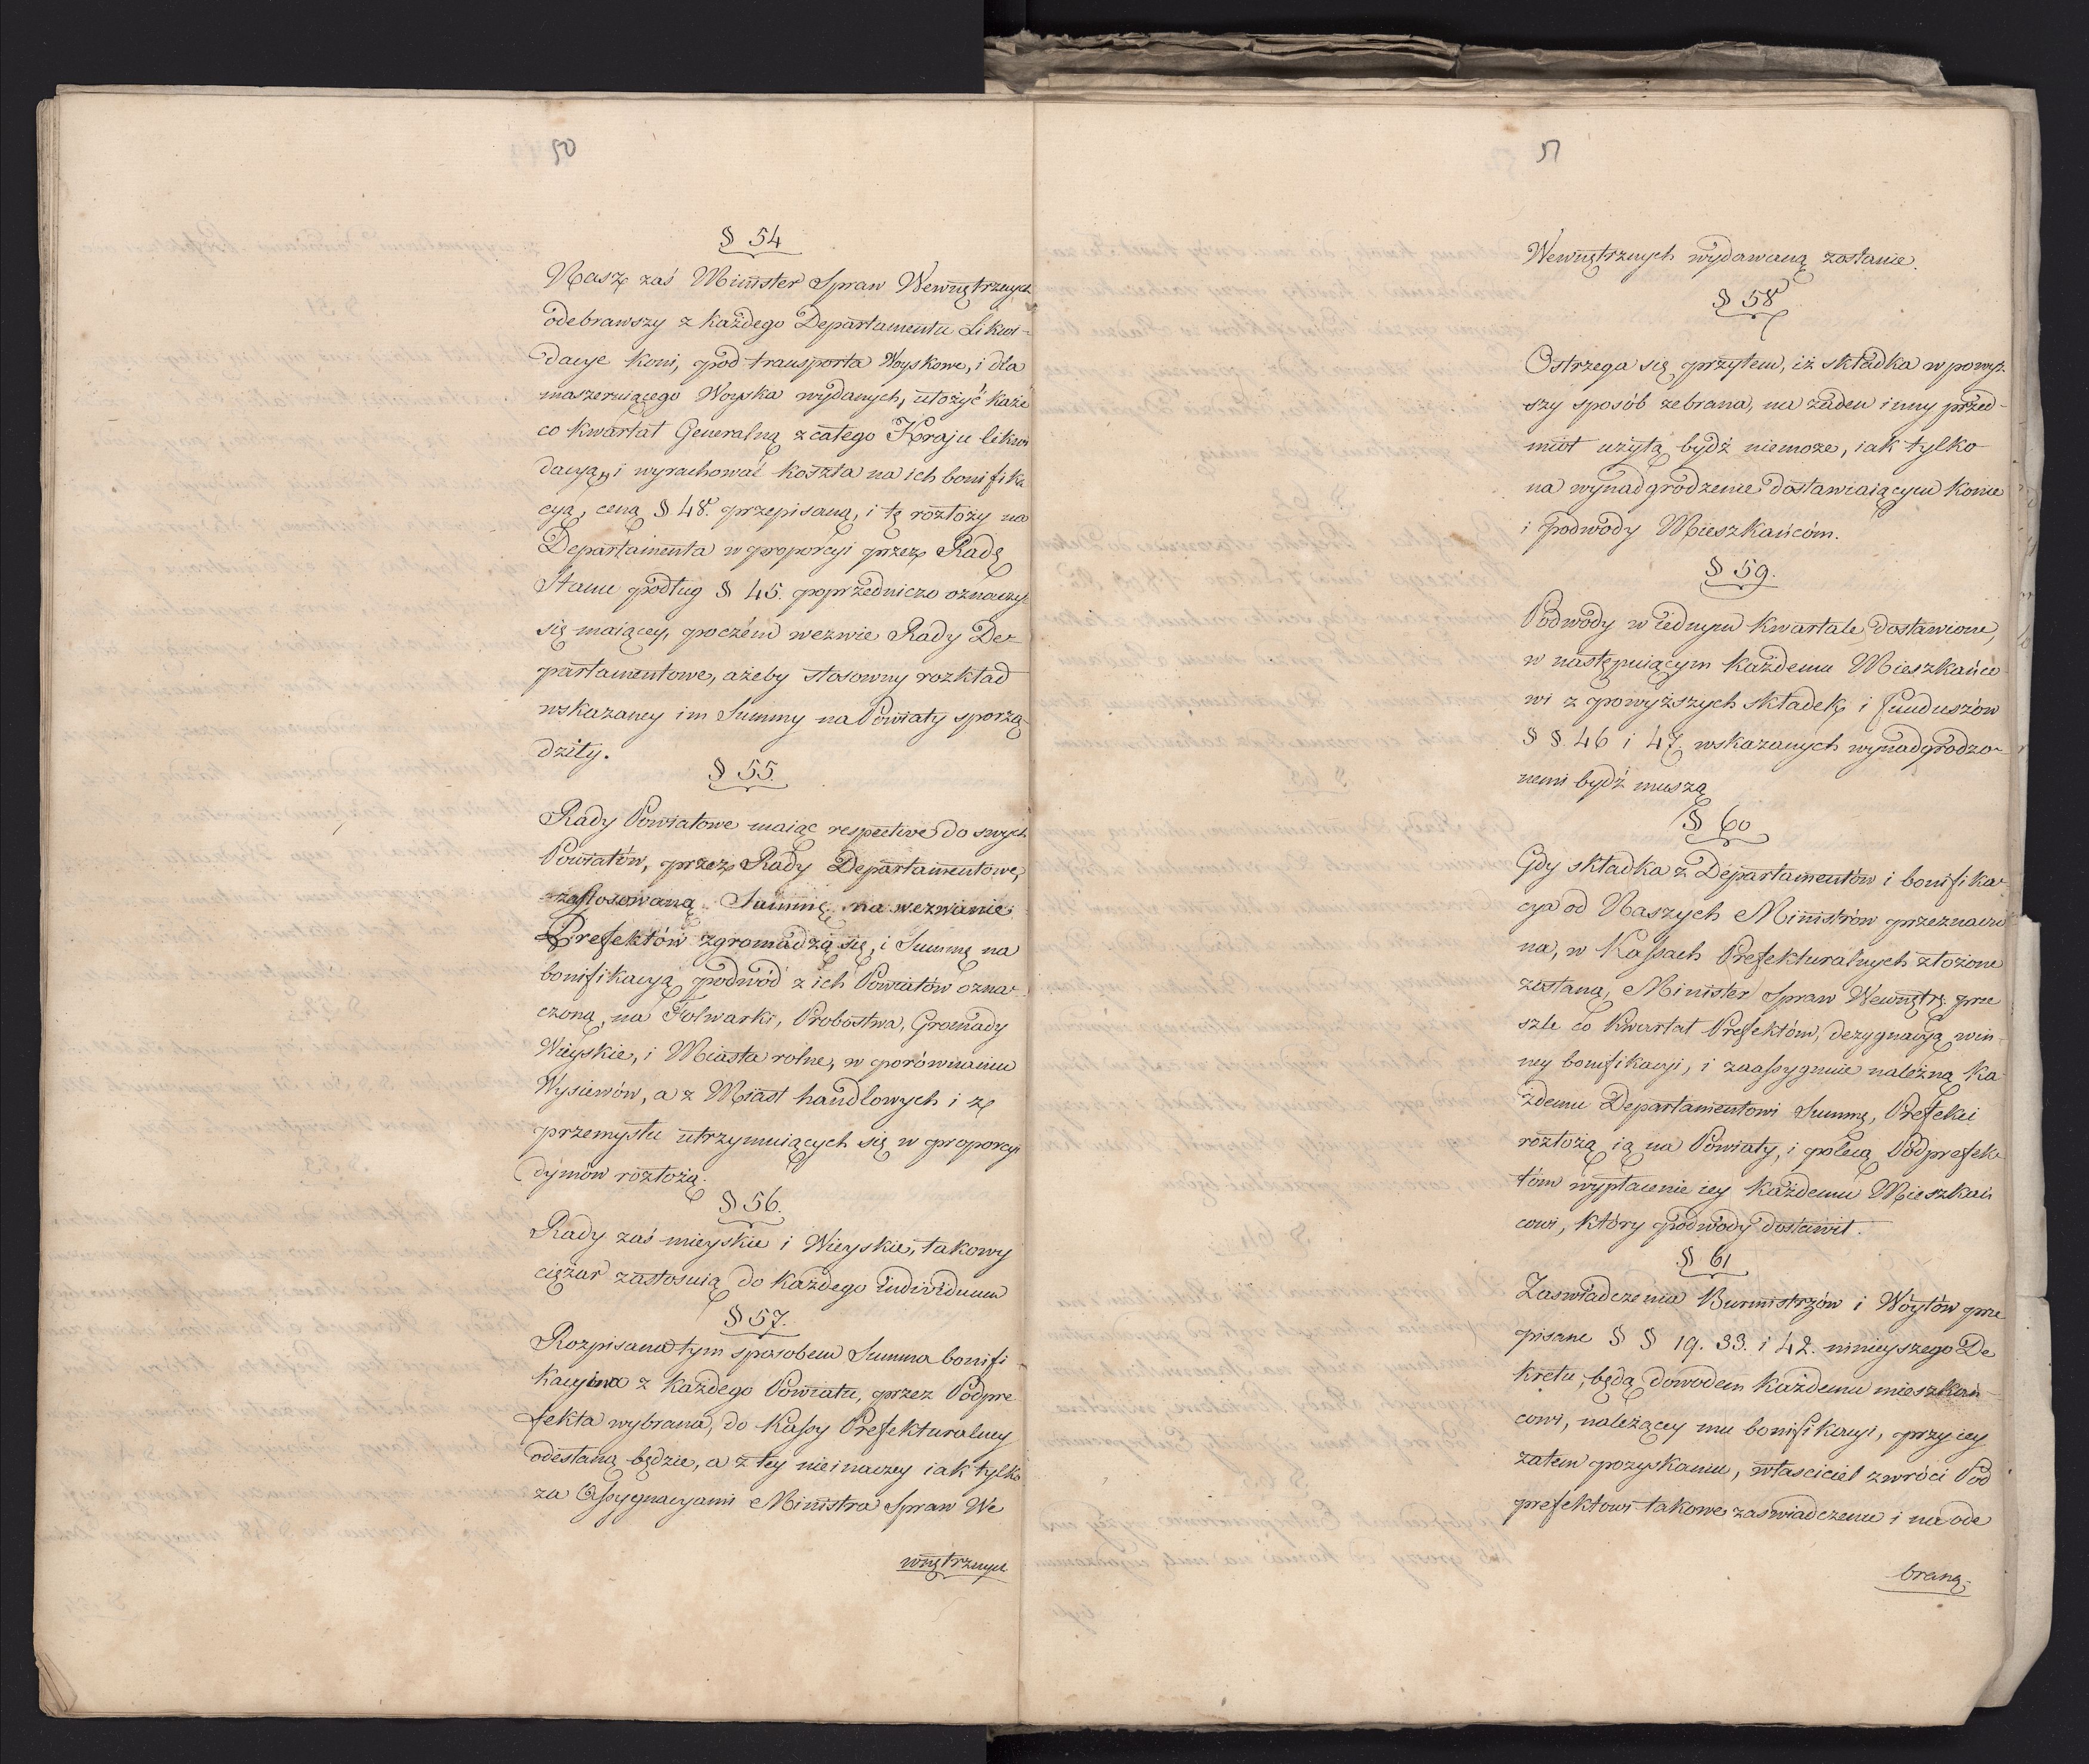 50
§ 54
Nasz zaś Minister Spraw Wewnętrznych
odebrawszy z każdego Departamentu Likwi-
dacye koni, pod transporta Woyskowe, i dla
maszeruiącego Woyska wydanych, ułożyć każe
co kwartał Generalną z całego Kraju likwi
dacyą, i wyrachować koszta na ich bonifika
cyą, ceną § 48. przepisaną, i tę rozłoży na
Departamenta w proporcyi przez Radę
Stanu podług § 45. poprzedniczo oznaczyć
się maiącey, poczém wezwie Rady De-
partamentowe, ażeby stosowny rozkład
wskazaney im Summy na Powiaty sporzą-
dziły.
§ 55.
Rady Powiatowe maiąc respective do swych
Powiatów, przez Rady Departamentowe,
zastosowaną Summę na wezwanie
Prefektów zgromadzą się, i Summę na
bonifikacyą podwód z ich Powiatów ozna-
czoną, na Folwarki, Probostwa, Gromady
Wieyskie, i Miasta rolne, w porównaniu
Wysiewów, a z Miast handlowych i z
przemysłu utrzymuiących się w proporcyi
dymów rozłożą.
§ 56.
Rady zaś mieyskie i Wieyskie, takowy
ciężar zastosuią do każdego individuum
§ 57.
Rozpisana tym sposobem Summa bonifi
kacyina z każdego Powiatu, przez Podpre
fekta wybrana, do Kassy Prefekturalney
odesłaną będzie, a z tey nieinaczey iak tylko
za Assygnacyami Ministra Spraw We
wnętrznych
51
Wewnętrznych wydawaną zostanie.
§ 58
Ostrzega się przytem, iż składka w powyż-
szy sposób zebrana, na żaden inny przed-
miot użytą bydź niemoże, iak tylko
na wynadgrodzenie dostawiaiącym konie
i podwody Mieszkańcóm.
§ 59.
Podwody w iednym kwartale dostawione,
w następuiącym każdemu Mieszkańco
wi z powyższych składek i funduszów
§ § 46 i 47, wskazanych wynadgrodzo-
nemi bydź muszą
§ 60
Gdy składka z Departamentów i bonifika-
cya od Naszych Ministrów przeznaczo
na, w Kassach Prefekturalnych złożone
zostaną, Minister Spraw Wewnętrz. prze
szle co Kwartał Prefektóm, dezygnacyą win-
ney bonifikacyi, i zaassygnuie należną ka-
żdemu Departamentowi Summę, Prefekci
rozłożą ią na Powiaty, i polecą Podprefek-
tóm wypłacenie iey każdemu Mieszkań
cowi, który podwody dostawił.
§ 61
Zaswiadczenia Burmistrzów i Wóytów prze
pisane § § 19. 33. i 42. ninieyszego De
kretu, będą dowodem każdemu mieszkań-
cowi, należącey mu bonifikacyi, przy iey
zatem pozyskaniu, własciciel zwróci Pod
prefektowi takowe zaswiadczenie i na ode
braną